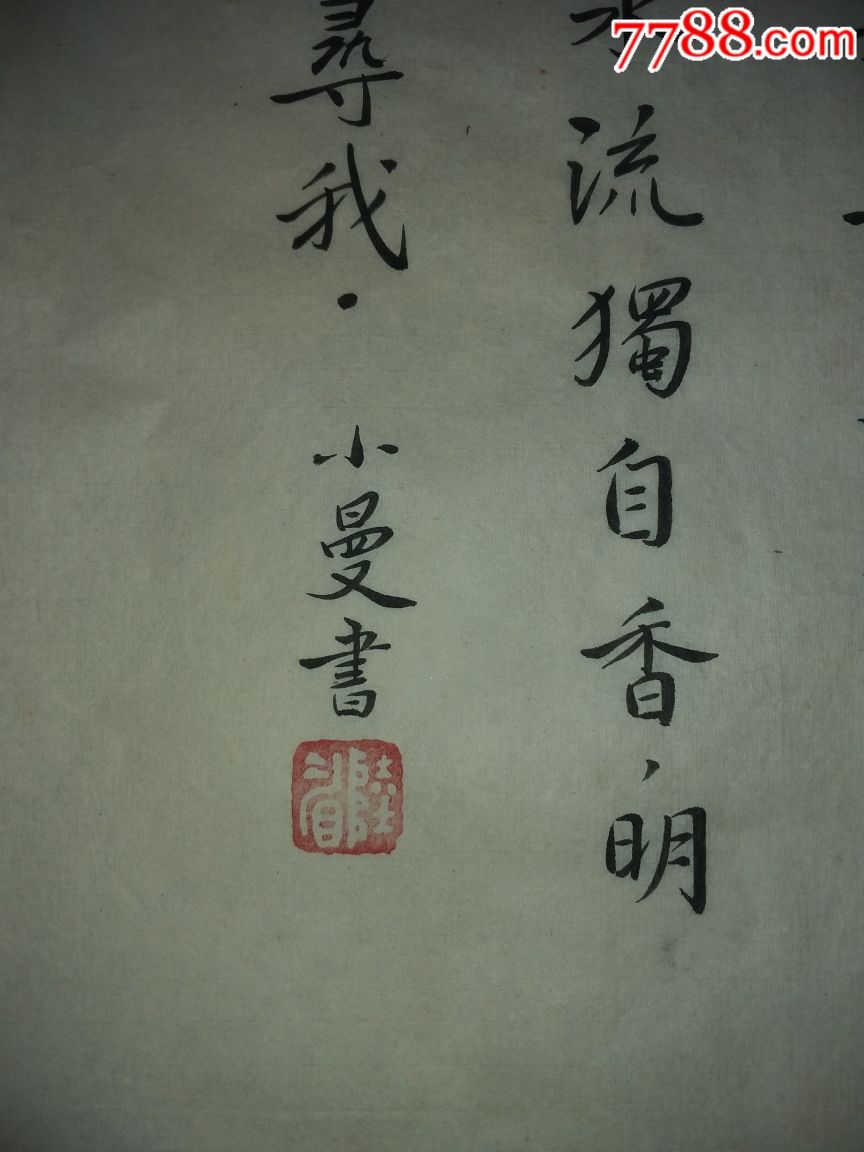 7788.com
流獨自香，明
尋我．
小曼書